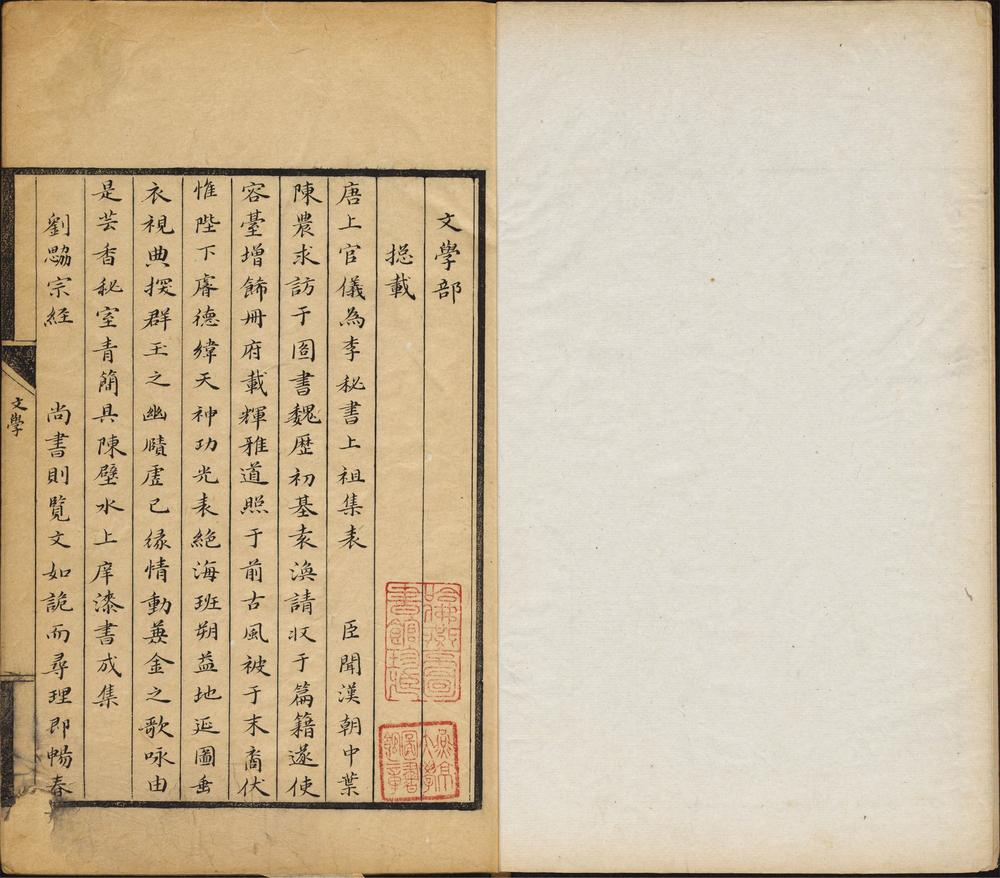 文學部
揔載
唐上官儀為李秘書上祖集表　臣聞漢朝中葉
陳農求訪于圖書魏歷初基袁渙請收于篇籍遂使
容臺增飾冊府載輝雅道照于前古風被于末裔伏
惟陛下膺德緯天神功光表絶海班朔益地延圖垂
衣視典探群玉之幽賾虛己緣情動金之歌咏由
是芸香秘室青簡具陳壁水上庠漆書成集
劉勰宗經　尚書則覽文如詭而尋理即暢春
文學
哈佛燕京圖書館珍藏